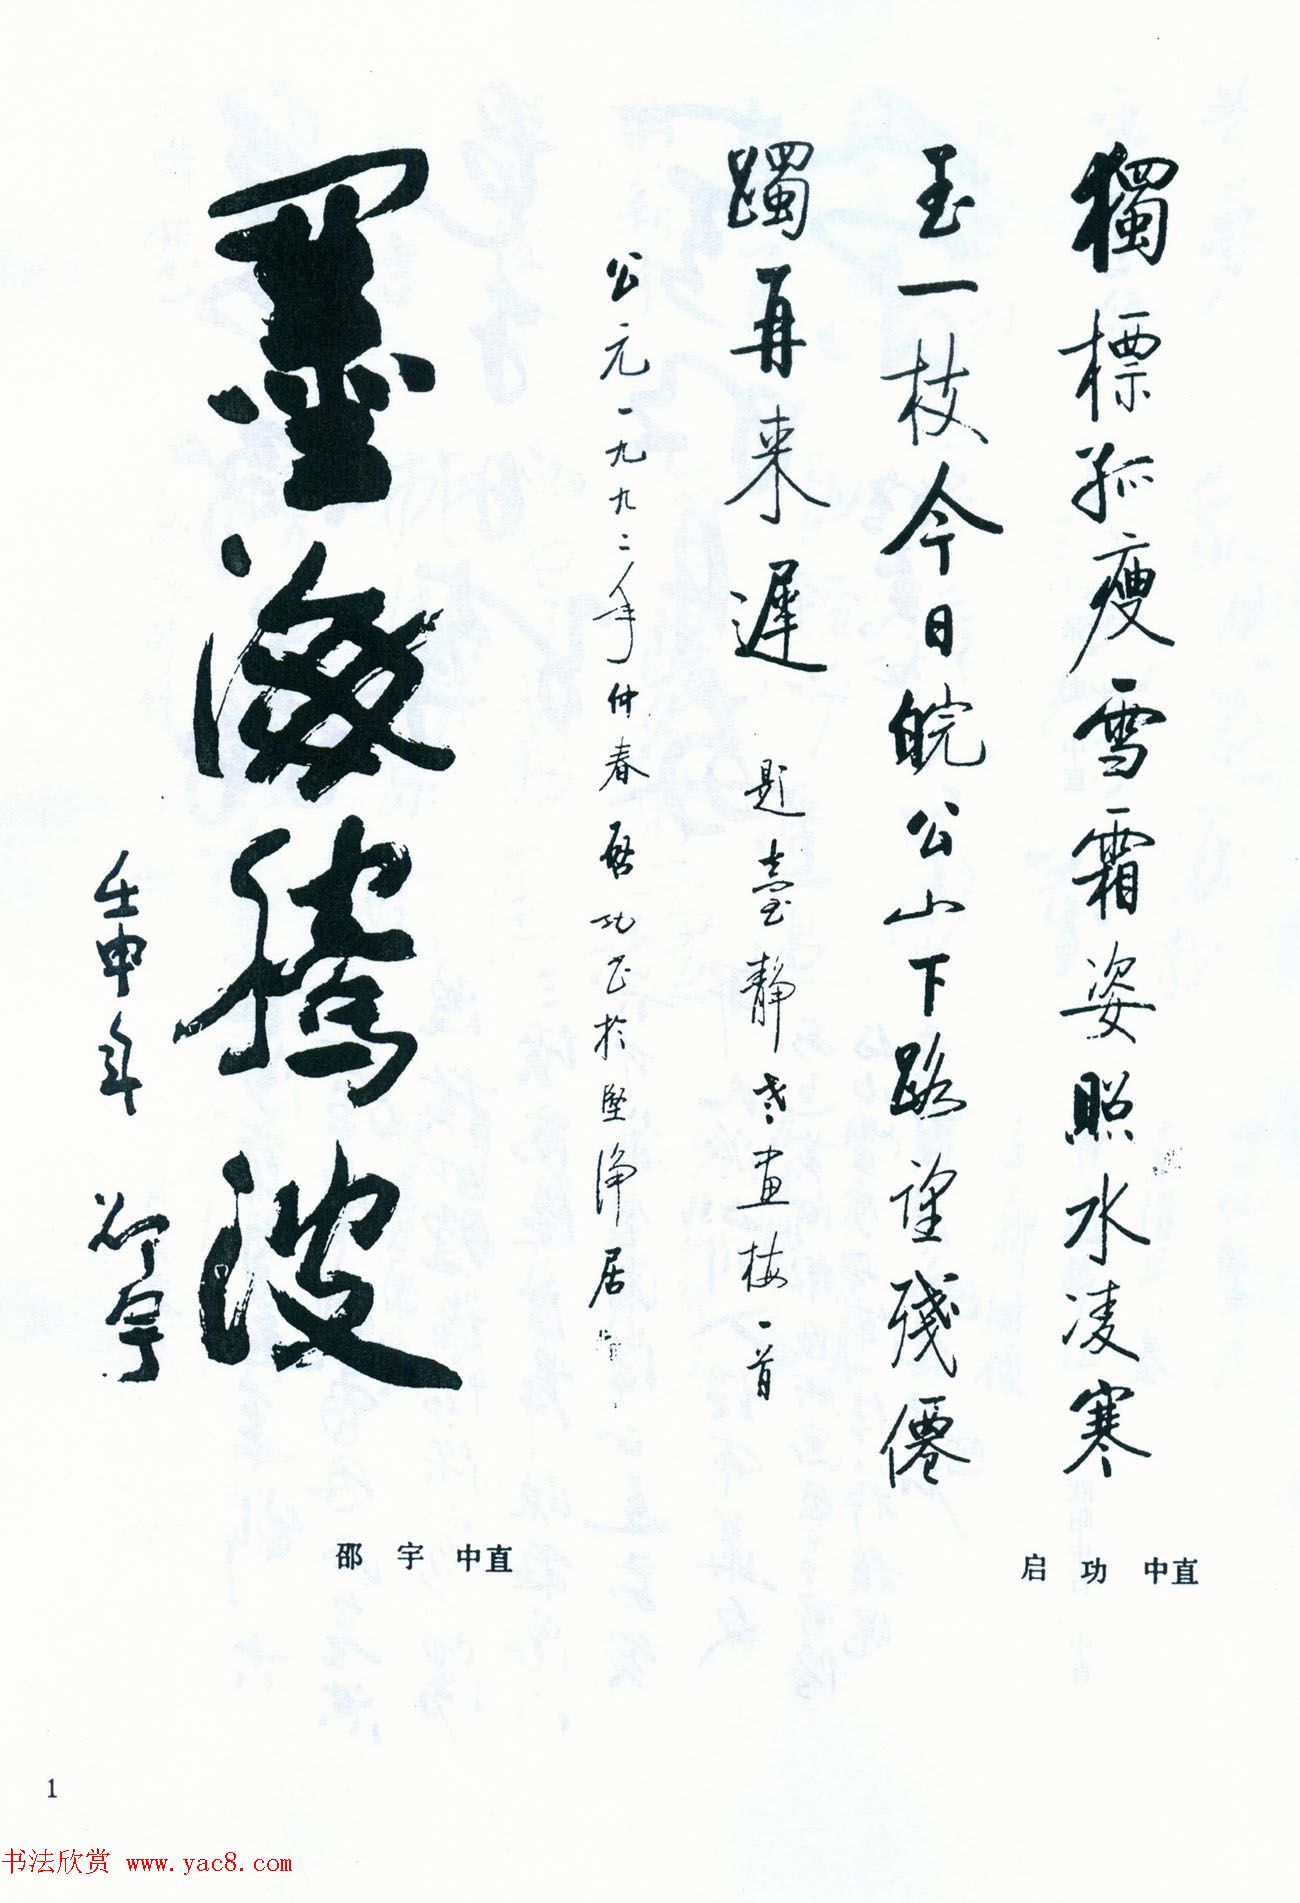 獨標孤瘦雪霜姿照水凌寒
玉一枝今日皖公山下路謹殘僊
躅再来遲
題臺靜老畫梅一首
公元一九九二年仲春啟功書於堅淨居
启 功 中直
墨海腾波
壬申年 邵宇
邵 宇 中直
1
书法欣赏 www.yac8.com